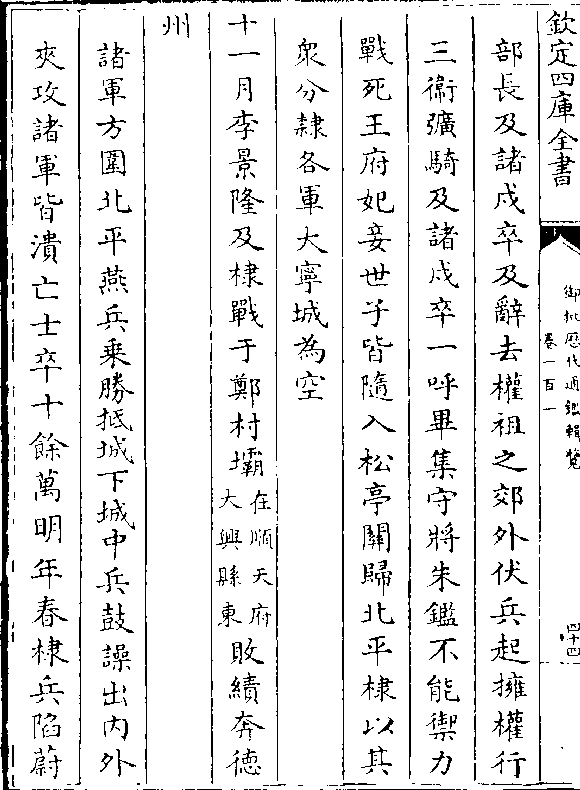 欽定四庫全書
御批歷代通鑑輯覽
卷一百一
四十四
部長及諸戍卒及辭去權祖之郊外伏兵起擁權行
三衛彍騎及諸戍卒一呼畢集守將朱鑑不能禦力
戰死王府妃妾世子皆隨入松亭關歸北平棣以其
衆分隸各軍大寧城為空
十一月李景隆及棣戰于鄭村壩在順天府大興縣東敗績奔德
州
諸軍方圍北平燕兵乗勝抵城下城中兵鼓譟出内外
夾攻諸軍皆潰亡士卒十餘萬明年春棣兵陷蔚